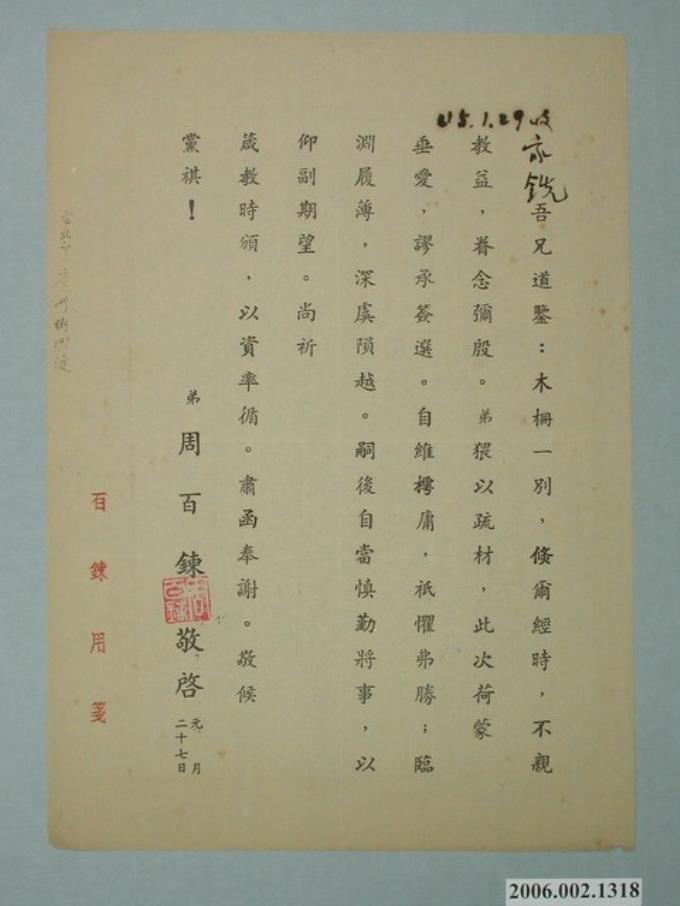 45.1.29收
吾兄道鑒：木柵一別，倏爾經時，不親
教益，眷念彌殷。弟猥以疏材，此次荷蒙
垂愛，謬承簽選。自維樗庸，祇懼弗勝；臨
淵履薄，深虞隕越。嗣後自當慎勤將事，以
仰副期望。尚祈
箴教時頒，以資率循。肅函奉謝。敬候
黨祺！
弟 周百鍊敬啓 元月二十七日
石鍊用箋
2006.002.1318